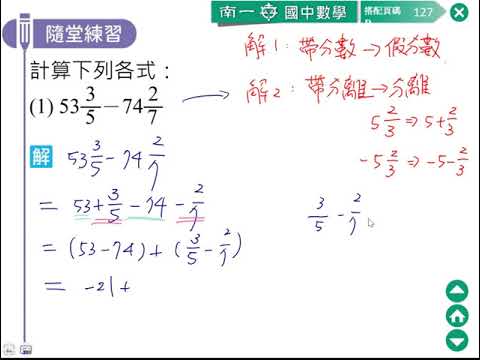 南一 國中數學
搭配頁碼
P. 127
隨堂練習
計算下列各式：
(1) 53 3/5 − 74 2/7
解1：帶分數→假分數
解2：帶分離→分離
5 2/3 ⇒ 5 + 2/3
−5 2/3 ⇒ −5 − 2/3
解 53 3/5 − 74 2/7
= 53 + 3/5 − 74 − 2/7
= (53 − 74) + (3/5 − 2/7)
= −21 +
3/5 − 2/7